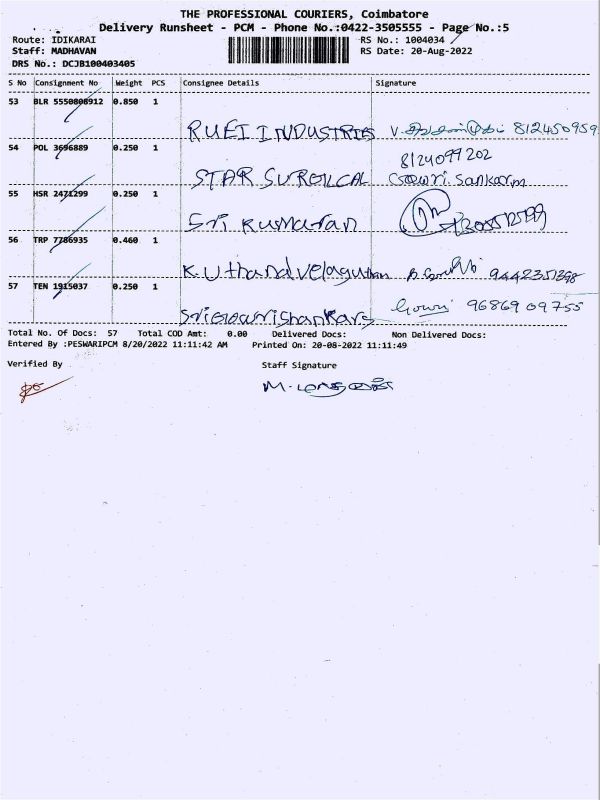 THE PROFESSIONAL COURIERS, Coimbatore
Delivery Runsheet - PCM - Phone No.:0422-3505555 - Page No.:5
Route: IDIKARAI
RS No.: 1004034
Staff: MADHAVAN
RS Date: 20-Aug-2022
DRS No.: DCJB100403405
S No Consignment No Weight PCS Consignee Details Signature
53 BLR 5550808912 0.850 1
RUEI INDUSTRIES 812450959
54 POL 3696889 0.250 1
8124099202
STAR SURGICAL Gowri.Sankar.m
55 HSR 2471299 0.250 1
Sri Kumaran
56 TRP 7786935 0.460 1
Kuthandvelagutham 9442351398
57 TEN 1915037 0.250 1
SriGowrishankars Gowri 96869 09755
Total No. Of Docs: 57 Total COD Amt: 0.00 Delivered Docs: Non Delivered Docs:
Entered By :PESWARIPCM 8/20/2022 11:11:42 AM Printed On: 20-08-2022 11:11:49
Verified By Staff Signature